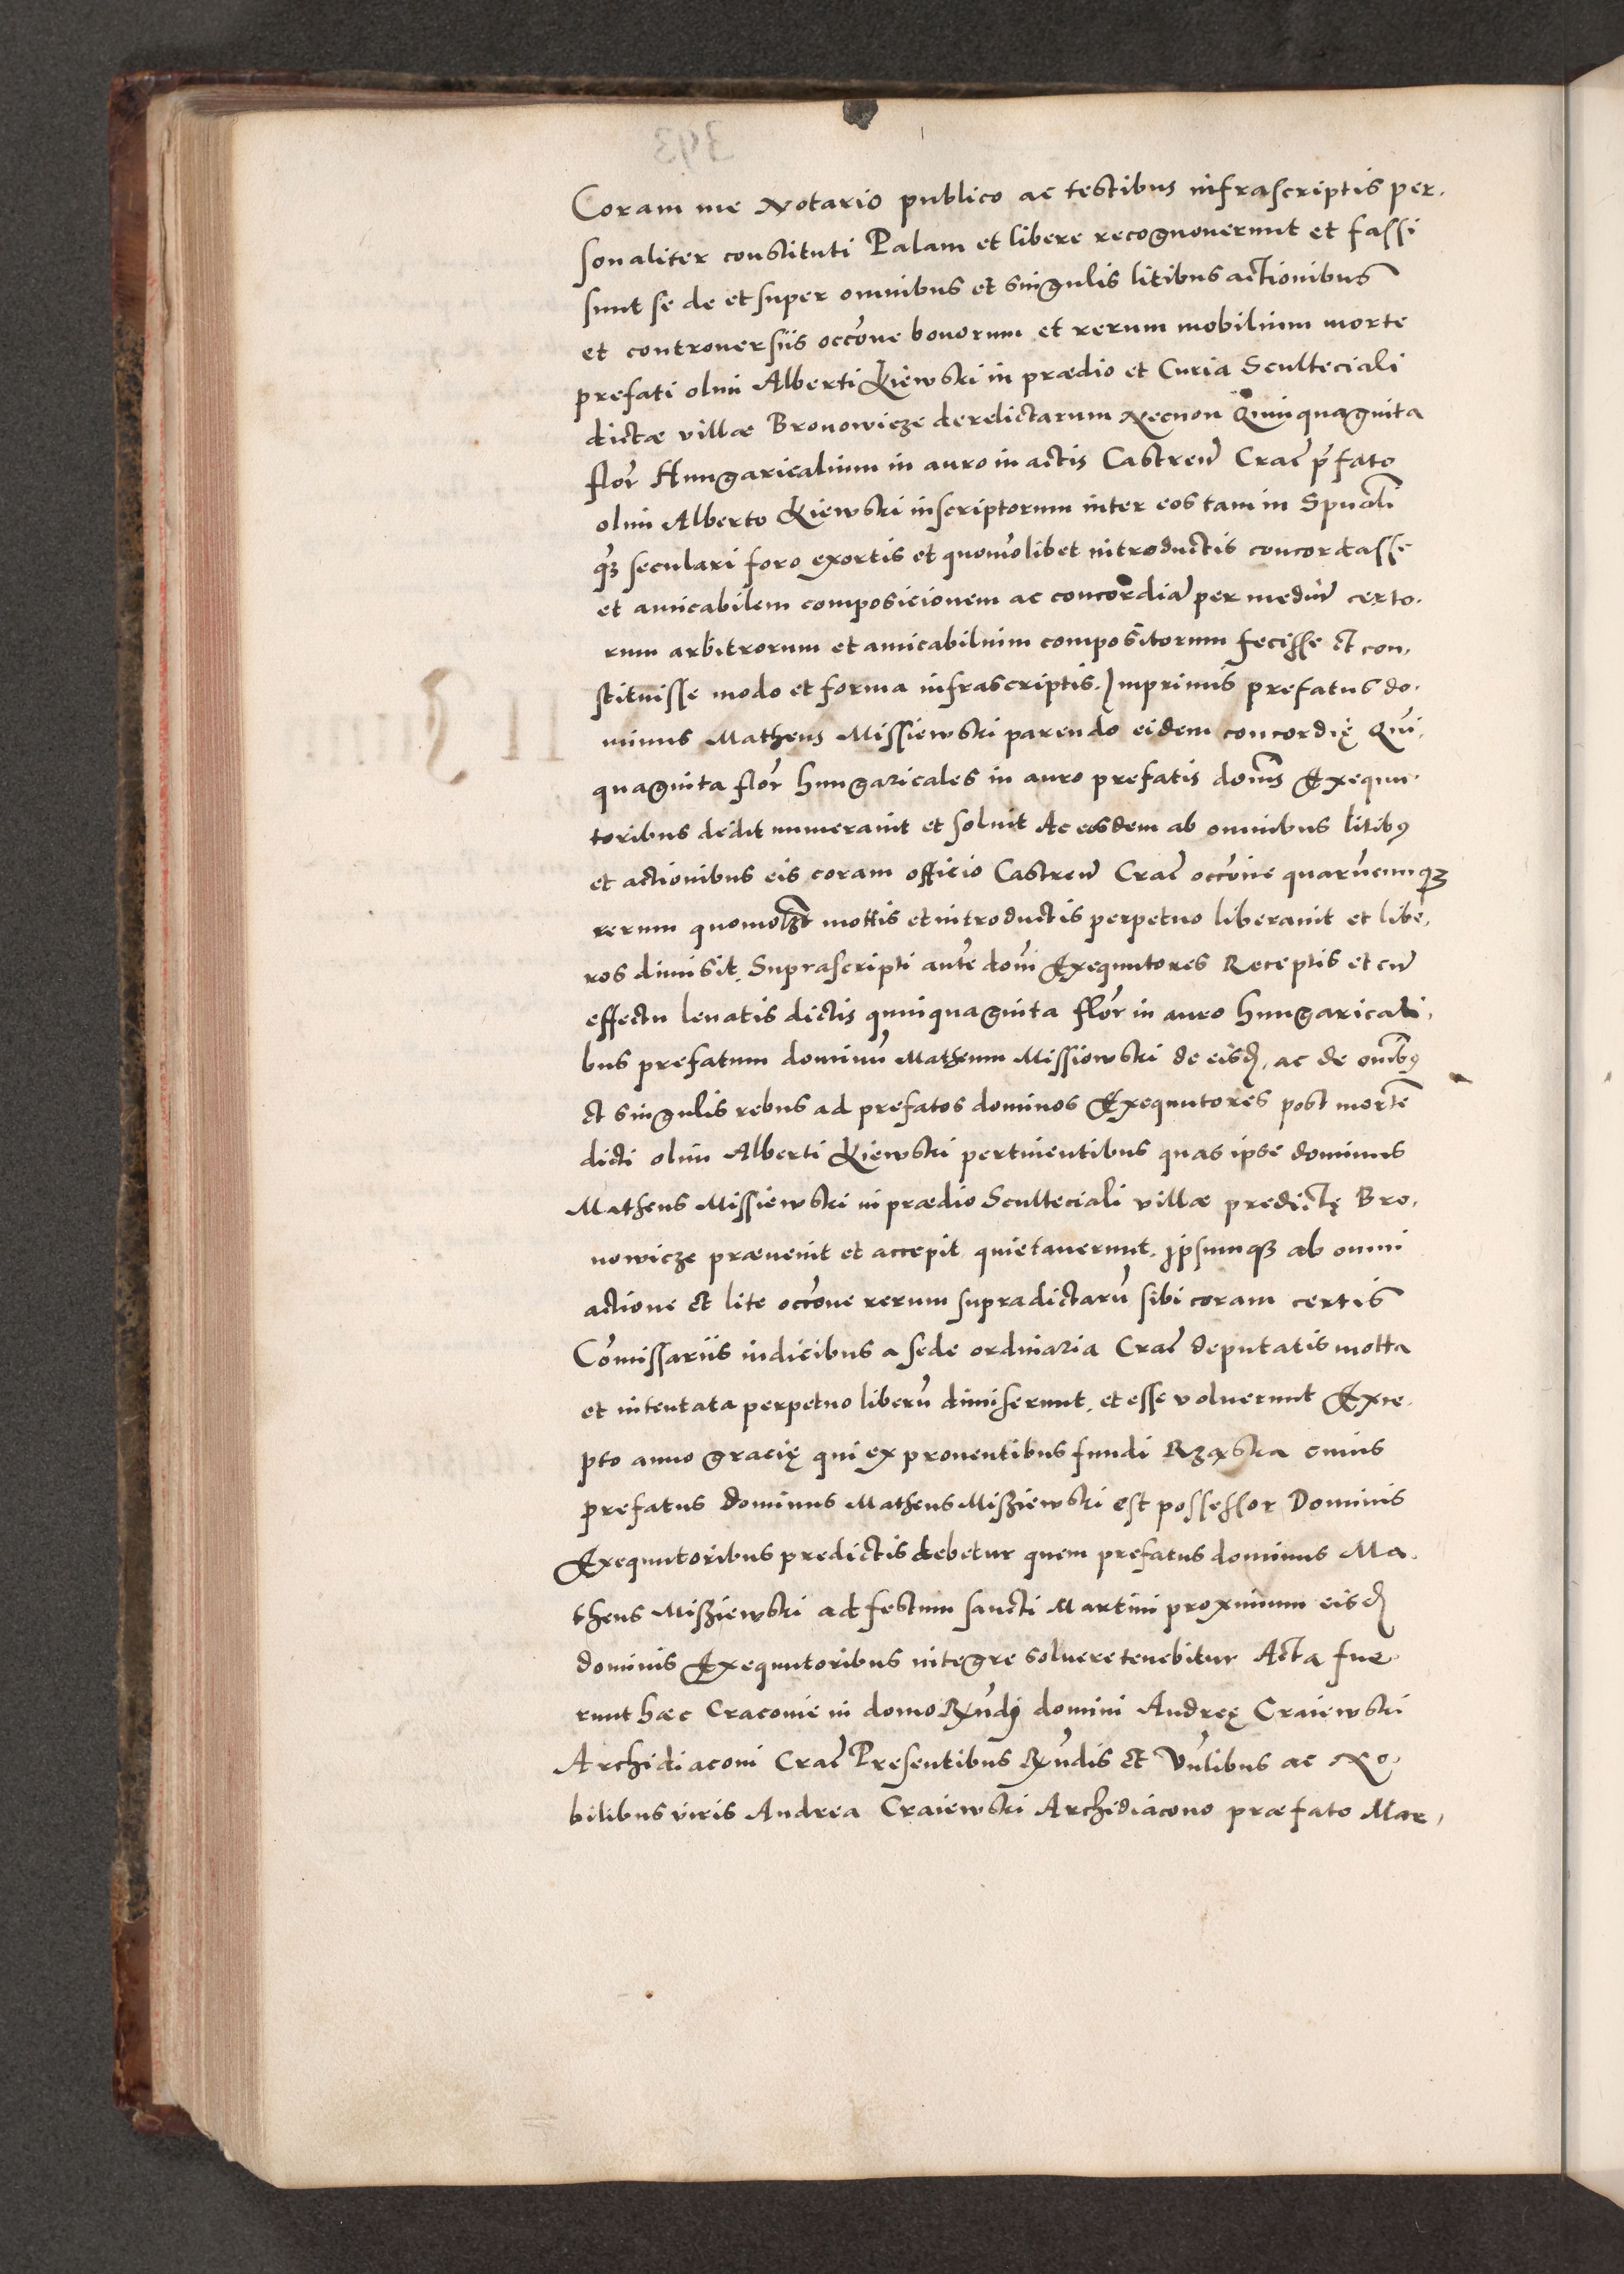 Coram me Notario publico ac testibus infrascriptis per.
sonaliter constituti Palam et libere recognouerunt et fassi
sunt se de et super omnibus et singulis litibus actionibus
et controuersiis occōne bonorum et rerum mobilium morte
prefati olim Alberti Kiewski in prædio et Curia Sculteciali
dictæ villæ Bronowicze derelictarum Necnon Quinquaginta
flor̄ Hungaricalium in auro in actis Castren̄ Crac̄ p̄fato
olim Alberto Kiewski inscriptorum inter eos tam in Spūali
q̄ȝ seculari foro exortis et quomōlibet introductis concordasse
et amicabilem composicionem ac concordiā per mediū certo.
rum arbitrorum et amicabilium compositorum fecisse et con,
stituisse modo et forma infrascriptis. Imprimis prefatus do.
minus Matheus Missiewski parendo eidem concordię Qui,
quaginta flor̄ hungaricales in auro prefatis domīs Exequu.
toribus dedit numerauit et soluit Ac eosdem ab omnibus litibꝰ
et actionibus eis coram officio Castren̄ Crac̄ occōne quarūcumqȝ
rerum quomolȝt mottis et introductis perpetuo liberauit et libe,
ros dimisit. Suprascripti autē domī Exequutores Receptis et cū
effectu leuatis dictis quinquaginta flor̄ in auro hungaricali,
bus prefatum dominū Matheum Missiowski de eisđ, ac de omībꝰ
et singulis rebus ad prefatos dominos Exequutores post mortē
dicti olim Alberti Kiewski pertinentibus quas ipse dominus
Matheus Missiewski in prædio Sculteciali villæ predictę Bro,
nowicze præuenit et accepit quietauerunt. Ipsumqȝ ab omni
actione et lite occōne rerum supradictarū sibi coram certis
Com̄issariis iudicibus a sede ordinaria Crac̄ deputatis motta
et intentata perpetuo liberū dimiserunt, et esse voluerunt Exce.
pto anno gracię qui ex prouentibus fundi Rząska cuius
prefatus dominus Matheus Misziewski est possessor Dominis
Exequutoribus predictis debetur quem prefatus dominus Ma.
theus Misziewski ad festum sancti Martini proximum eisđ
dominis Exequutoribus integre soluere tenebitur Acta fue.
runt hæc Cracouie in domo R̄ndi domini Andreę Craiewski
Archidiaconi Crac̄ Presentibus R̄ndis et Vn̄libus ac No.
bilibus viris Andrea Craiewski Archidiacono præfato Mar,